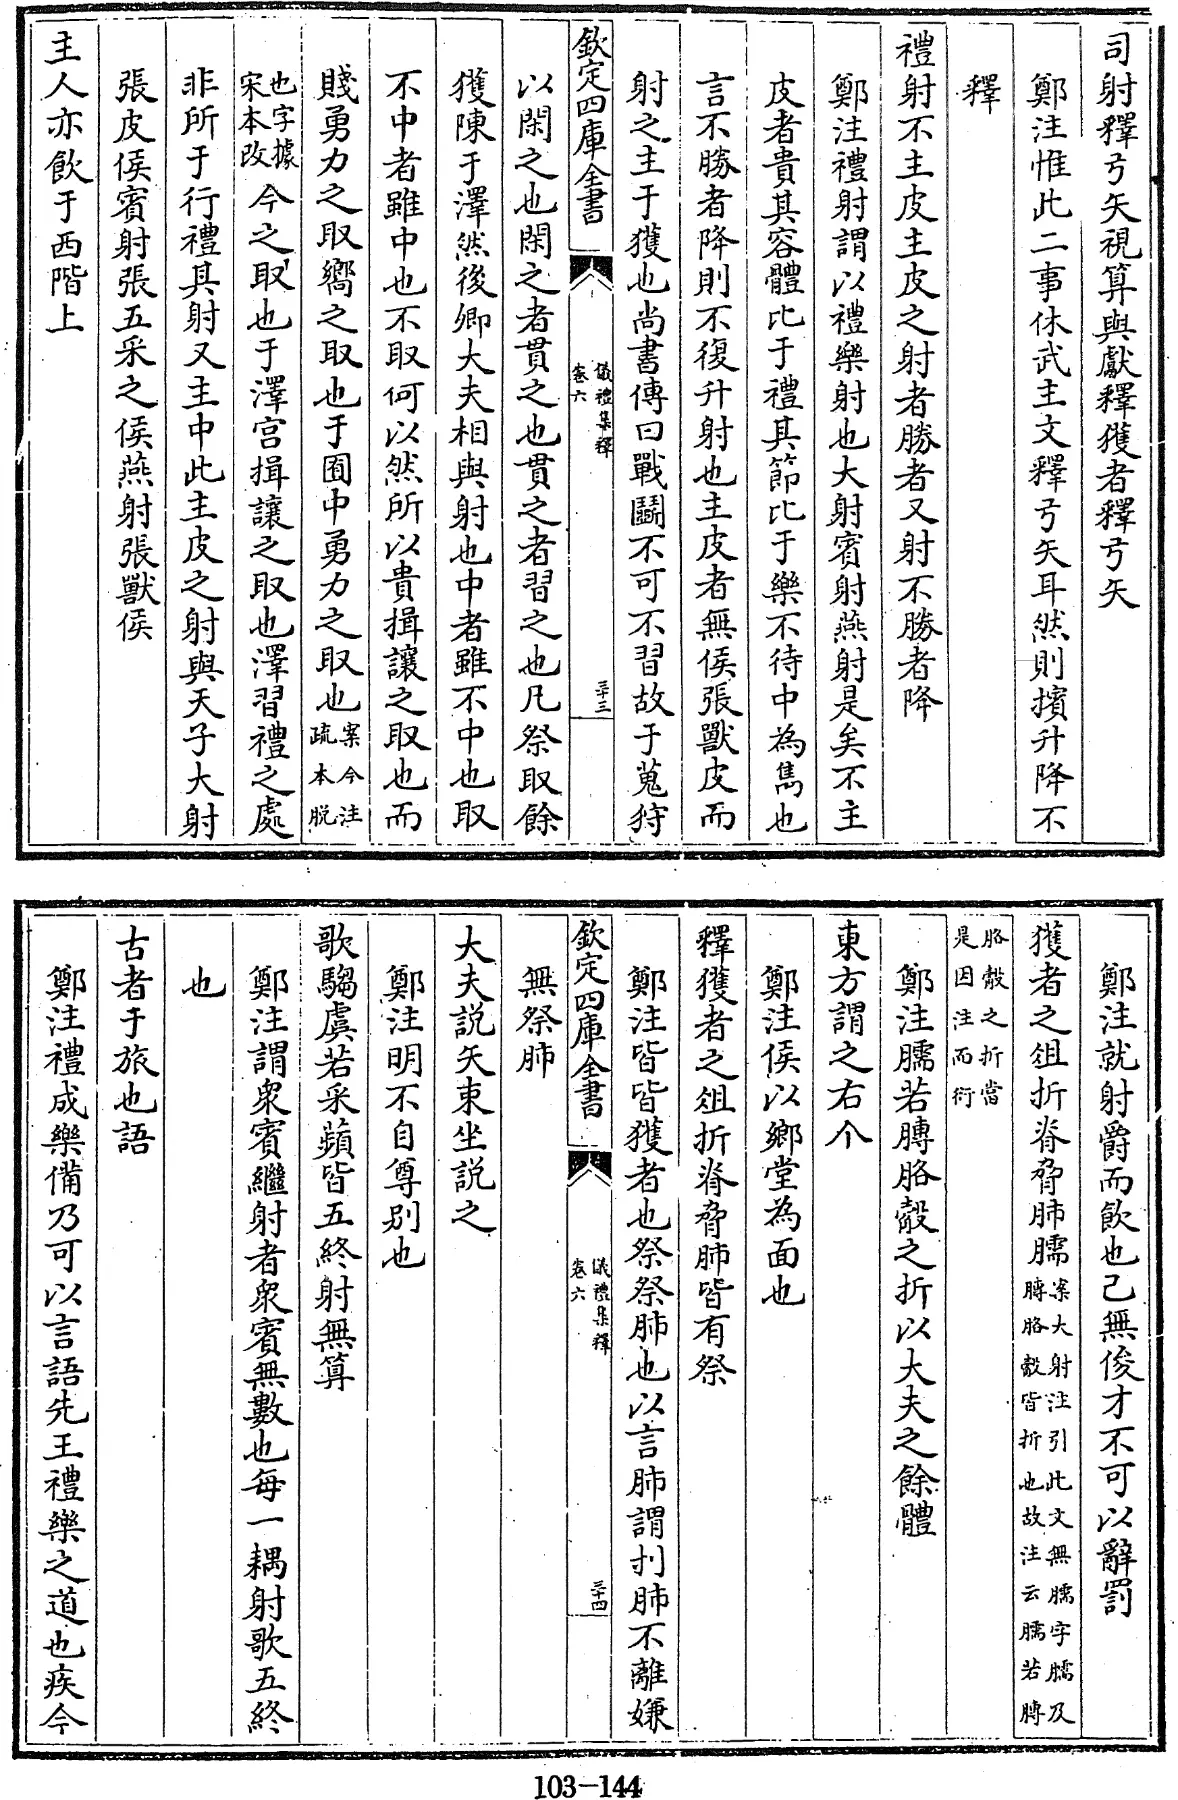 司射釋弓矢視算與獻釋獲者釋弓矢
鄭注惟此二事休武主文釋弓矢耳然則擯升降不
釋
禮射不主皮主皮之射者勝者又射不勝者降
鄭注禮射謂以禮樂射也大射賓射燕射是矣不主
皮者貴其容體比于禮其節比于樂不待中為雋也
言不勝者降則不復升射也主皮者無侯張獸皮而
射之主于獲也尚書傳曰戰鬬不可不習故于蒐狩
欽定四庫全書
儀禮集釋
卷六
三十三
以閑之也閑之者貫之也貫之者習之也凡祭取餘
獲陳于澤然後卿大夫相與射也中者雖不中也取
不中者雖中也不取何以然所以貴揖讓之取也而
賤勇力之取嚮之取也于囿中勇力之取也案今注
疏本脱
也字據
宋本改今之取也于澤宮揖讓之取也澤習禮之處
非所于行禮其射又主中此主皮之射與天子大射
張皮侯賓射張五采之侯燕射張獸侯
主人亦飲于西階上
鄭注就射爵而飲也己無俊才不可以辭罰
獲者之俎折脊脅肺臑案大射注引此文無臑字臑及
膊胳觳皆折也故注云臑若膊
胳觳之折當
是因注而衍
鄭注臑若膊胳觳之折以大夫之餘體
東方謂之右个
鄭注侯以鄉堂為面也
釋獲者之俎折脊脅肺皆有祭
鄭注皆皆獲者也祭祭肺也以言肺謂刌肺不離嫌
欽定四庫全書
儀禮集釋
卷六
三十四
無祭肺
大夫説矢束坐説之
鄭注明不自尊别也
歌騶虞若采蘋皆五終射無算
鄭注謂衆賓繼射者衆賓無數也每一耦射歌五終
也
古者于旅也語
鄭注禮成樂備乃可以言語先王禮樂之道也疾今
103-144